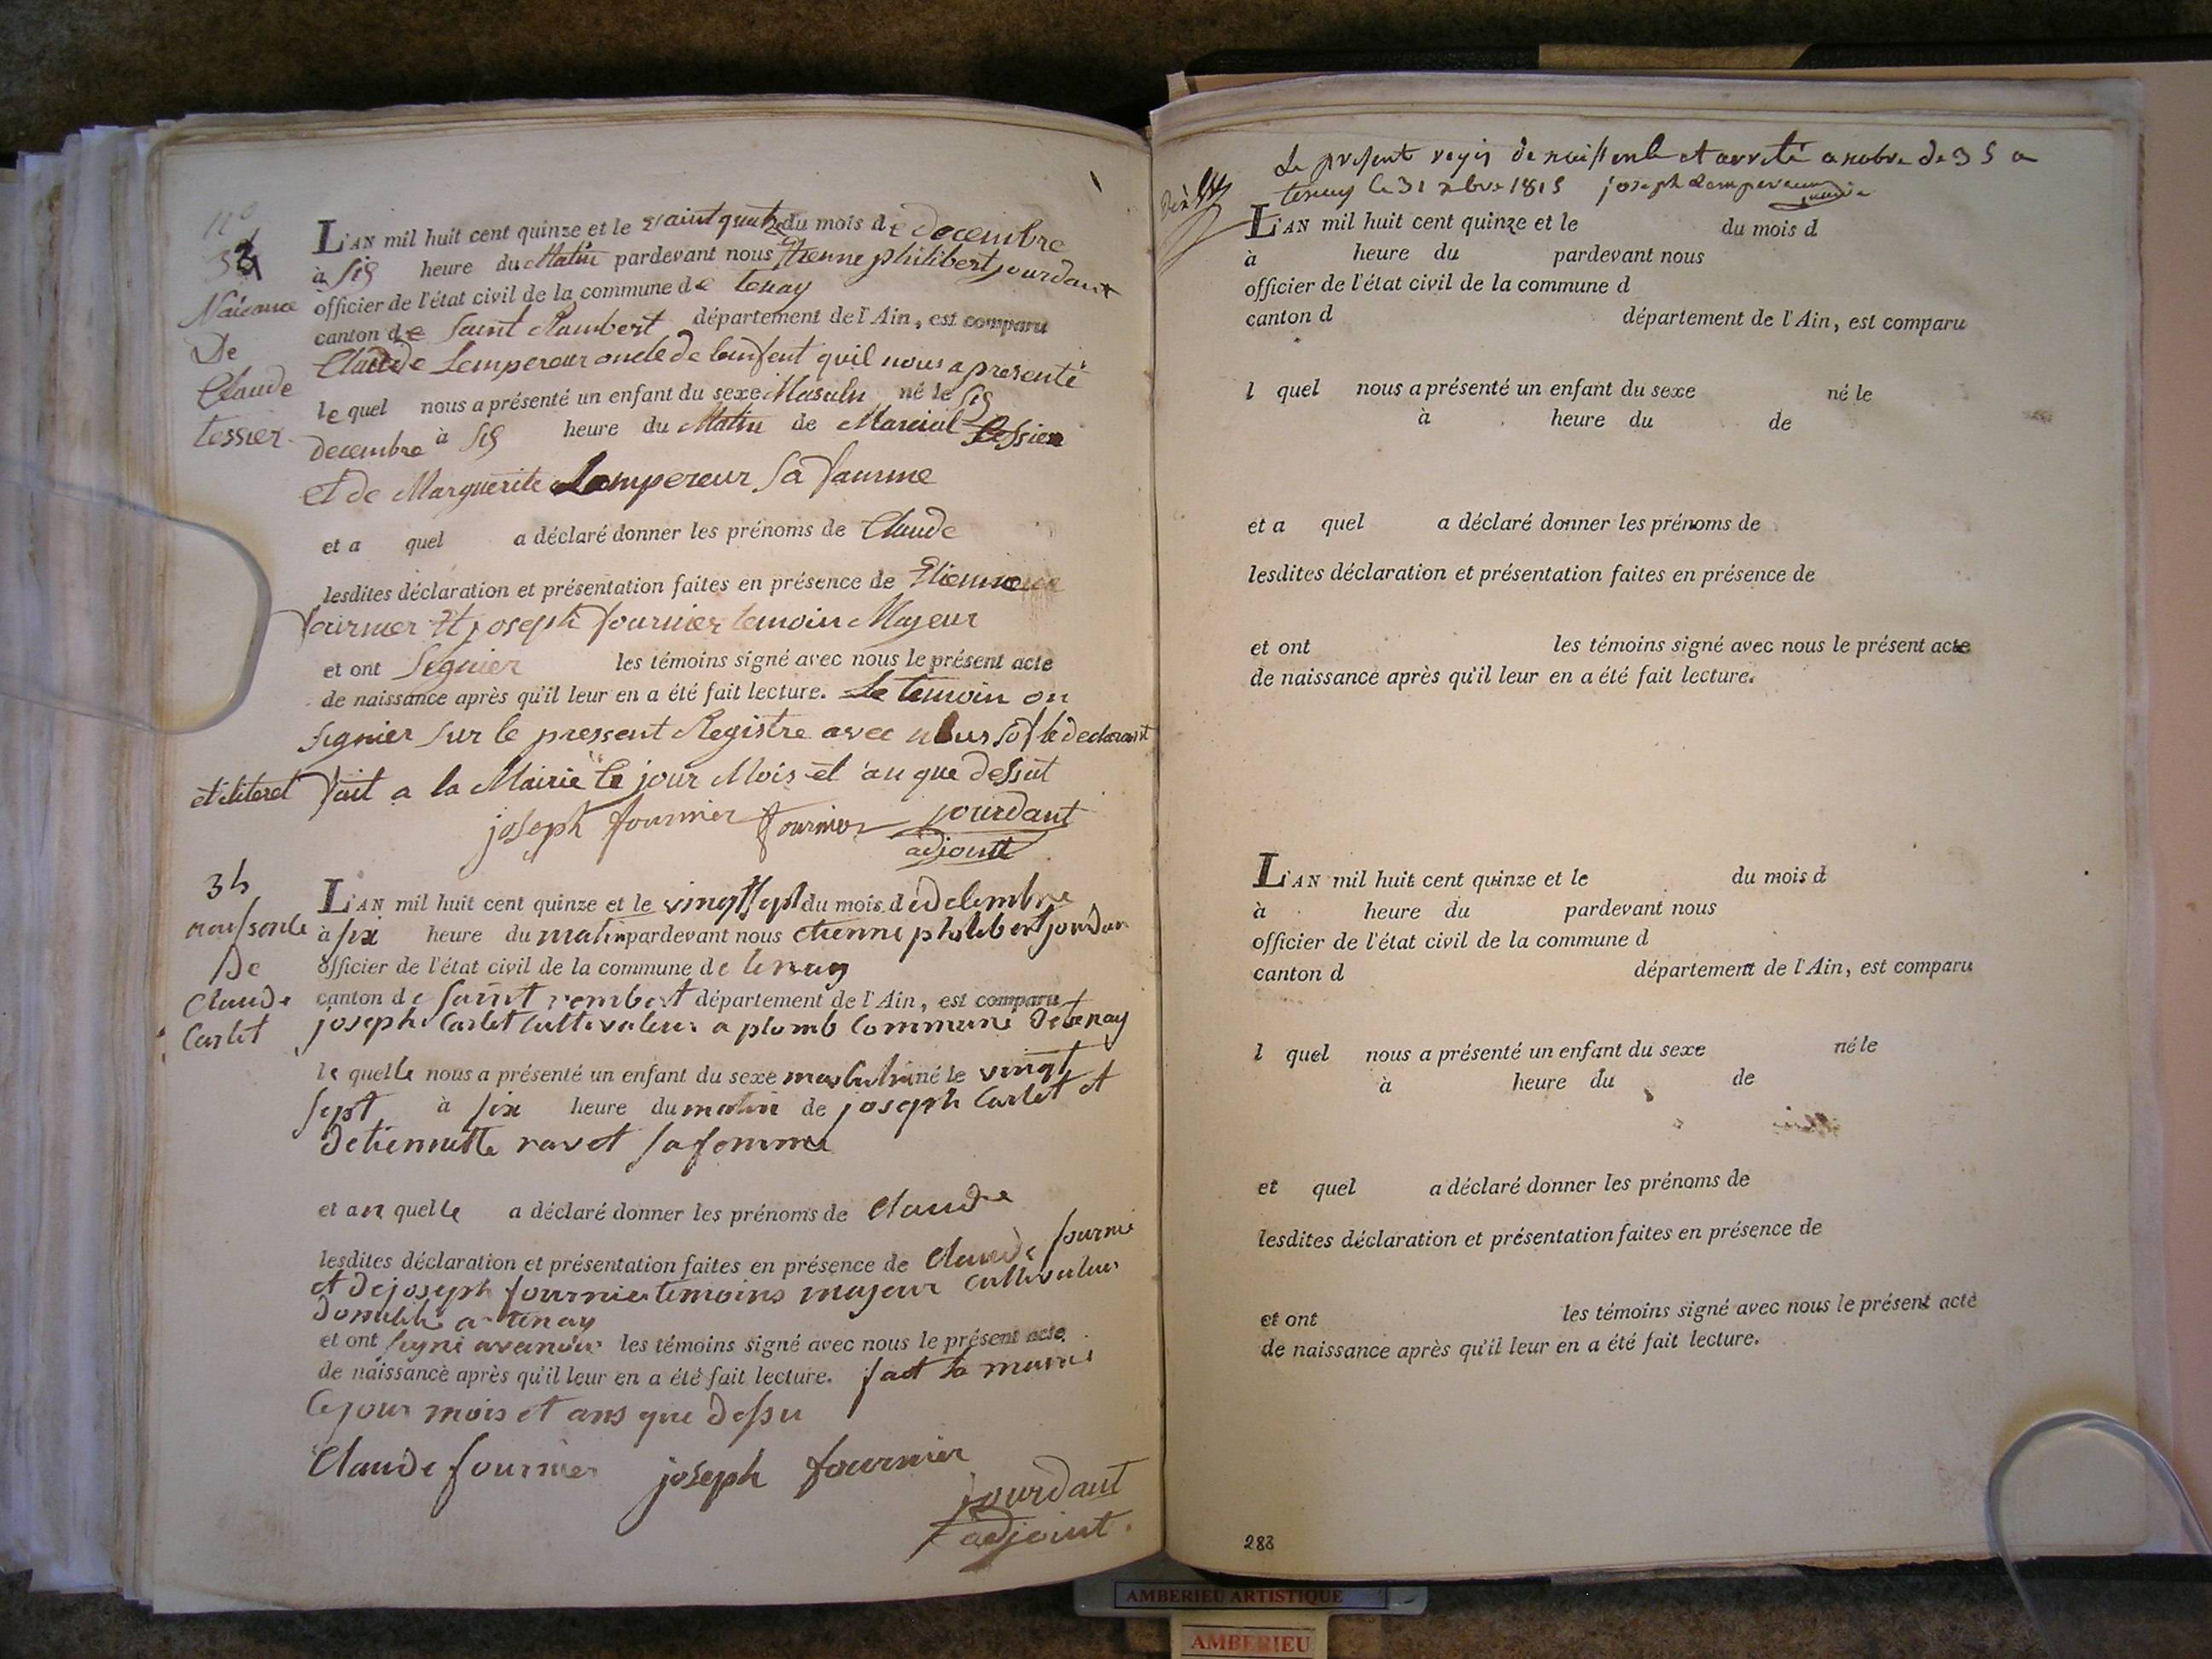 n°
33
Naisance
De
Claude
tessier
L'AN mil huit cent quinze et le vaint quatre du mois de decembre
à sis heure du Matin pardevant nous Etienne philibert jourdant
officier de l'état civil de la commune de tenay
canton de Saint Rambert département de l'Ain, est comparu
Claude Lempereur oncle de lanfent quil nous a presenté
le quel nous a présenté un enfant du sexe Masculin né le sis
decembre à sis heure du Matin de Marcial tessier
et de Marguerite Lampereur sa famme
et a quel a déclaré donner les prénoms de Claude
lesdites déclaration et présentation faites en présence de Etienne
fournier Et joseph fournier temoin Majeur
et ont Segnier les témoins signé avec nous le présent acte
de naissance après qu'il leur en a été fait lecture. Le temoin on
signier sur le pressent Registre avec nous sof le declarant
fait a la Mairie le jour Mois et an que dessut
joseph fournier fournier jourdant
adjoint
34
naissence
De
Claude
Carlet
L'AN mil huit cent quinze et le vingt sept du mois de decembre
à six heure du matin pardevant nous etienne philibert jourdan
officier de l'état civil de la commune de tenay
canton de saint rembert département de l'Ain, est comparu
joseph Carlet Cultivateur a plomb Commune de tenay
le quelle nous a présenté un enfant du sexe masculin né le vingt
sept à six heure du matin de joseph Carlet et
detiennette ravet sa femme
et au quelle a déclaré donner les prénoms de claude
lesdites déclaration et présentation faites en présence de claude fournie
et de joseph fournier temoins majeur cultivateur
domicilié a tenay
et ont signé avec nous les témoins signé avec nous le présent acte
de naissance après qu'il leur en a été fait lecture. fait la mairie
le jour mois et ans que dessu
Claude fournier joseph fournier
jourdant
adjoint.
Le present regis de naissence et arreté a nobre de 35 a
tenay le 31 xbre 1815 joseph Lempereur
L'AN mil huit cent quinze et le du mois d
à heure du pardevant nous
officier de l'état civil de la commune d
canton d département de l'Ain, est comparu
l quel nous a présenté un enfant du sexe né le
à heure du de
et a quel a déclaré donner les prénoms de
lesdites déclaration et présentation faites en présence de
et ont les témoins signé avec nous le présent acte
de naissance après qu'il leur en a été fait lecture.
L'AN mil huit cent quinze et le du mois d
à heure du pardevant nous
officier de l'état civil de la commune d
canton d département de l'Ain, est comparu
l quel nous a présenté un enfant du sexe né le
à heure du de
et quel a déclaré donner les prénoms de
lesdites déclaration et présentation faites en présence de
et ont les témoins signé avec nous le présent acte
de naissance après qu'il leur en a été fait lecture.
288
AMBERIEU ARTISTIQUE
AMBERIEU